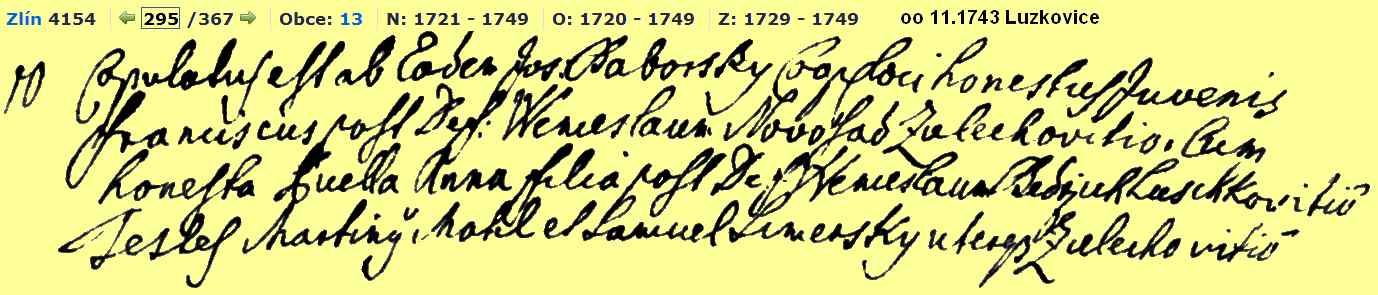 Zlín 4154 295 /367 Obce: 13 N: 1721 - 1749 O: 1720 - 1749 Z: 1729 - 1749 oo 11.1743 Luzkovice
10 Copulatus est ab Eodem Jos: Baborsky Cap: loci honestus Juvenis
Franciscus post Def: Wenceslaum Novosad Zalechovitio. Cum
honesta Puella Anna filia post Def: Wenceslaum Bedrich Luschkovitio
Testes Martinus et Samuel Simersky Zalechovitio